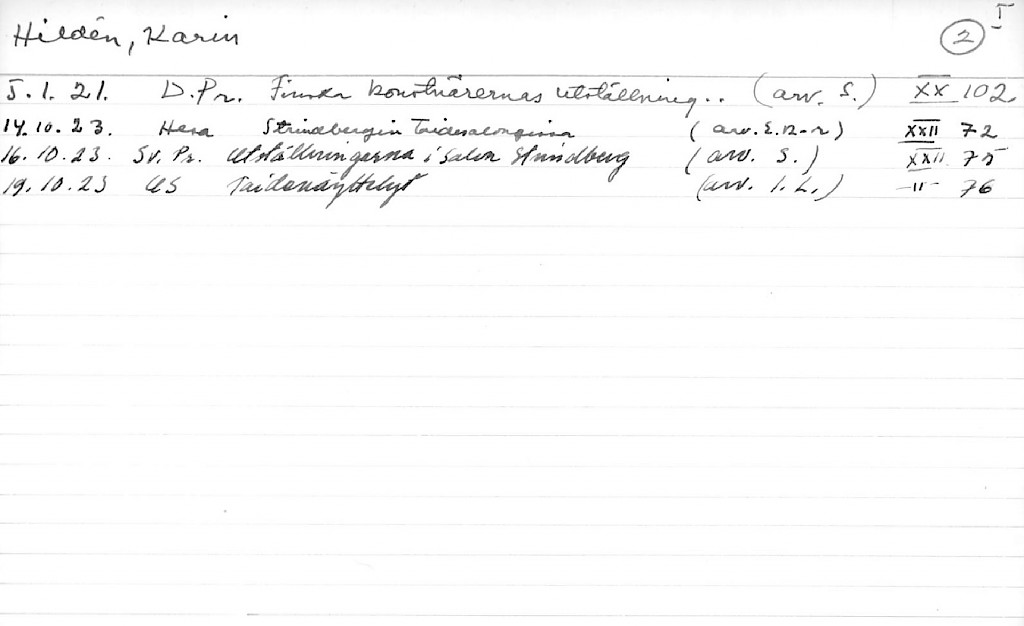 Hildén, Karin 2 I
5.1.21. D.Pr. Finska konstnärernas utställning.. (arv. S.) XX 102
14.10.23. Hesa Strindbergin Taidesalongissa (arv. E.R-r) XXII 72
16.10.23. Sv. Pr. Utställningarna i Salon Strindberg (arv. S.) XXII 75
19.10.23 US Taidenäyttelyt (arv. I.L.) -"- 76